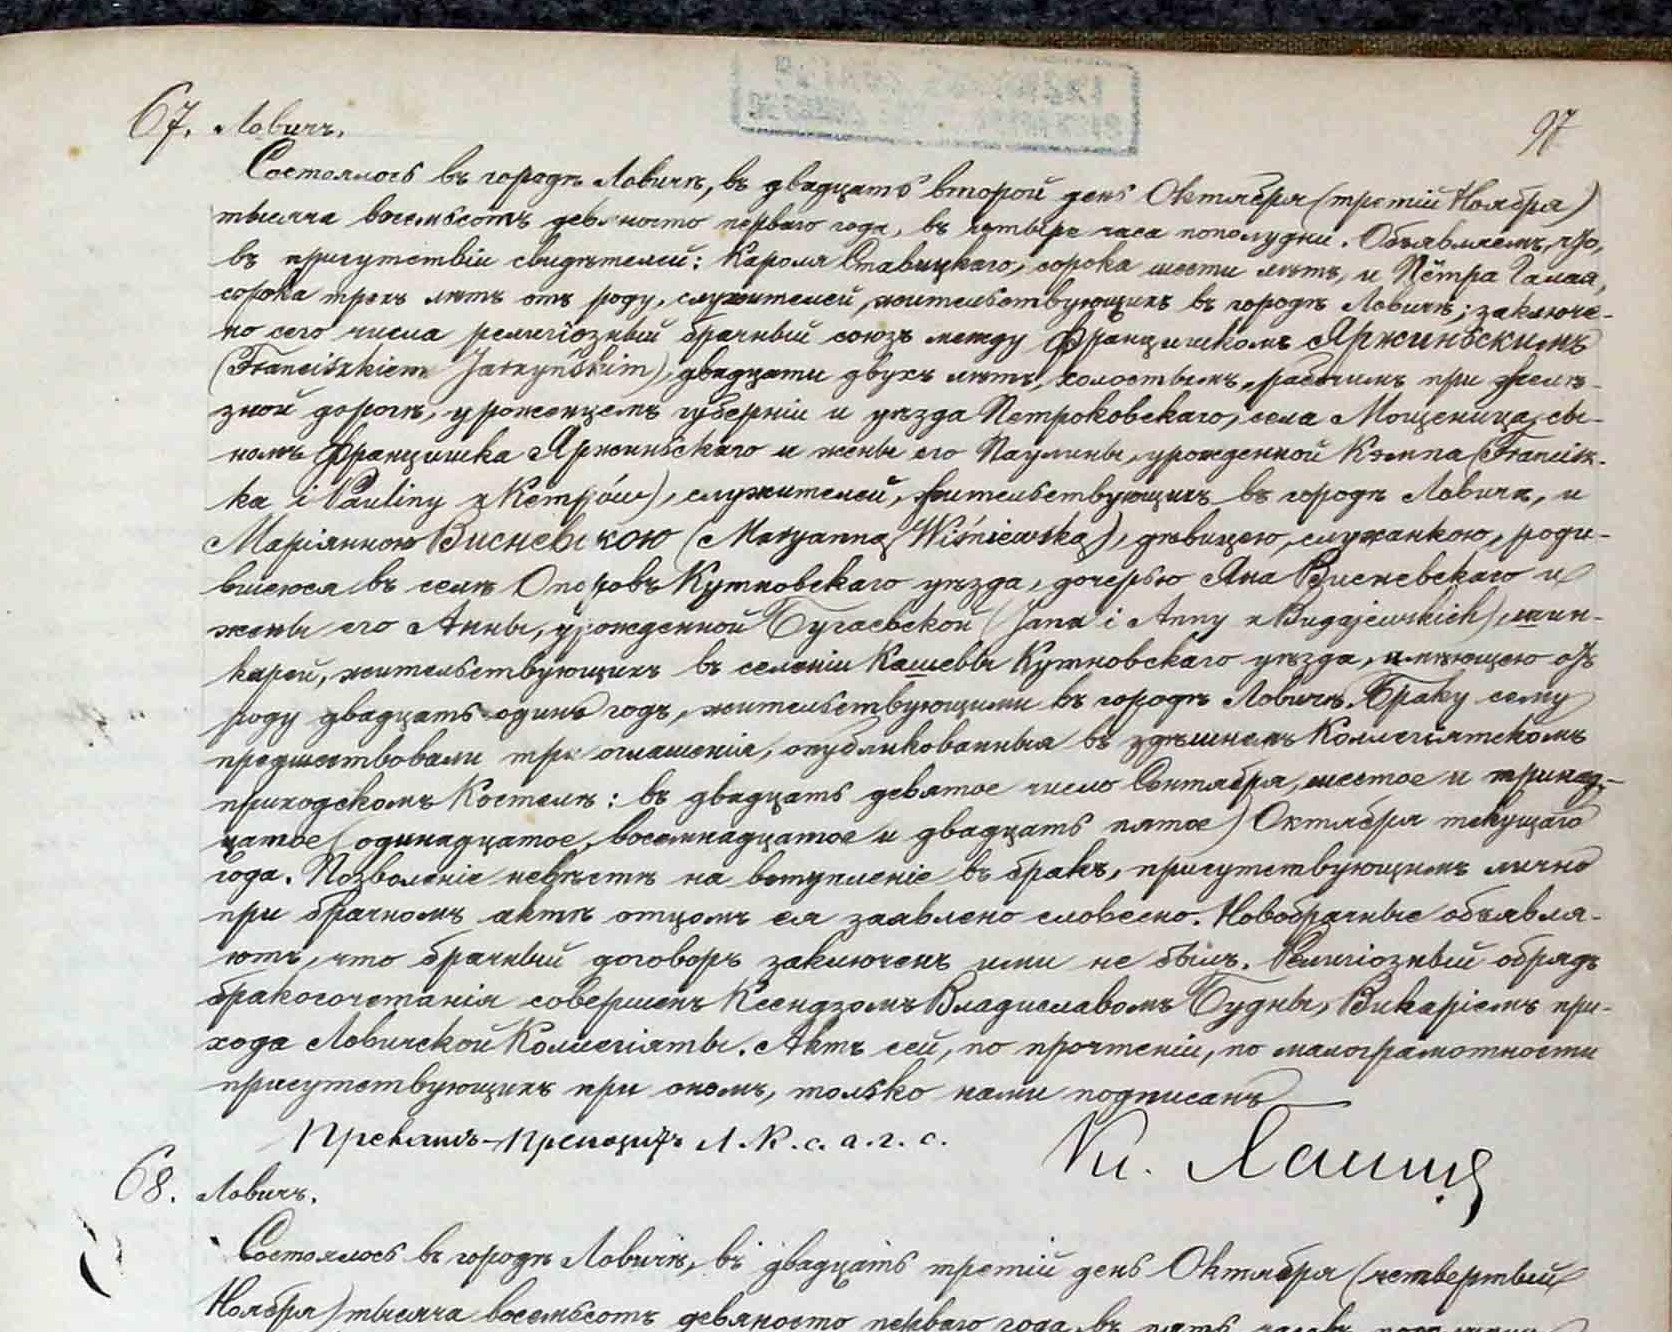 67. Ловичъ.
97
Состоялось въ городѣ Ловичѣ, въ двадцать второй день Октября (третій Ноября)
тысяча восемьсотъ девяносто перваго года, въ четыре часа пополудни. Объявляемъ, что,
въ присутствіи свидѣтелей: Кароля Ставицкаго, сорока шести лѣтъ, и Пётра Галая,
сорока трехъ лѣтъ отъ роду, служителей, жительствующихъ въ городѣ Ловичѣ; заключе-
но сего числа религіозный брачный союзъ между Францишкомъ Яржиньскимъ
(Franciszkiem Jarzyńskim), двадцати двухъ лѣтъ, холостымъ, рабочимъ при желѣ-
зной дорогѣ, уроженцемъ губерніи и уѣзда Петроковскаго, села Мощеница, сы-
номъ Францишка Яржиньскаго и жены его Паулины, урожденной Кэмпа (Francisz-
ka i Pauliny z Kempów), служителей, жительствующихъ въ городѣ Ловичѣ, и
Маріянною Висневскою (Maryanną Wiśniewską), дѣвицею, служанкою, роди-
вшеюся въ селѣ Опоровъ Кутновскаго уѣзда, дочерью Яна Висневскаго и
жены его Анны, урожденной Бугаевской (Jana i Anny z Bugajewskich), шин-
карей, жительствующихъ въ селеніи Кашевы Кутновскаго уѣзда, имѣющею отъ
роду двадцать одинъ годъ, жительствующими въ городѣ Ловичѣ. Браку сему
предшествовали три оглашенія, опубликованныя въ здѣшнемъ Коллегіятскомъ
приходскомъ Костелѣ: въ двадцать девятое число Сентября, шестое и тринад-
цатое (одинадцатое, восемнадцатое и двадцать пятое) Октября текущаго
года. Позволеніе невѣстѣ на вступленіе въ бракъ, присутствующимъ лично
при брачномъ актѣ отцомъ ея заявлено словесно. Новобрачные объявля-
ютъ, что брачный договоръ заключенъ ими не былъ. Религіозный обрядъ
бракосочетанія совершенъ Ксендзомъ Владиславомъ Будны, Викаріемъ при-
хода Ловичской Коллегіяты. Актъ сей, по прочтеніи, по малограмотности
присутствующихъ при ономъ, только нами подписанъ
Л. К. с. а. г. с.
68. Ловичъ.
Состоялось въ городѣ Ловичѣ, въ двадцать третій день Октября (четвертый
Ноября) тысяча восемьсотъ девяносто перваго года, въ пять часовъ